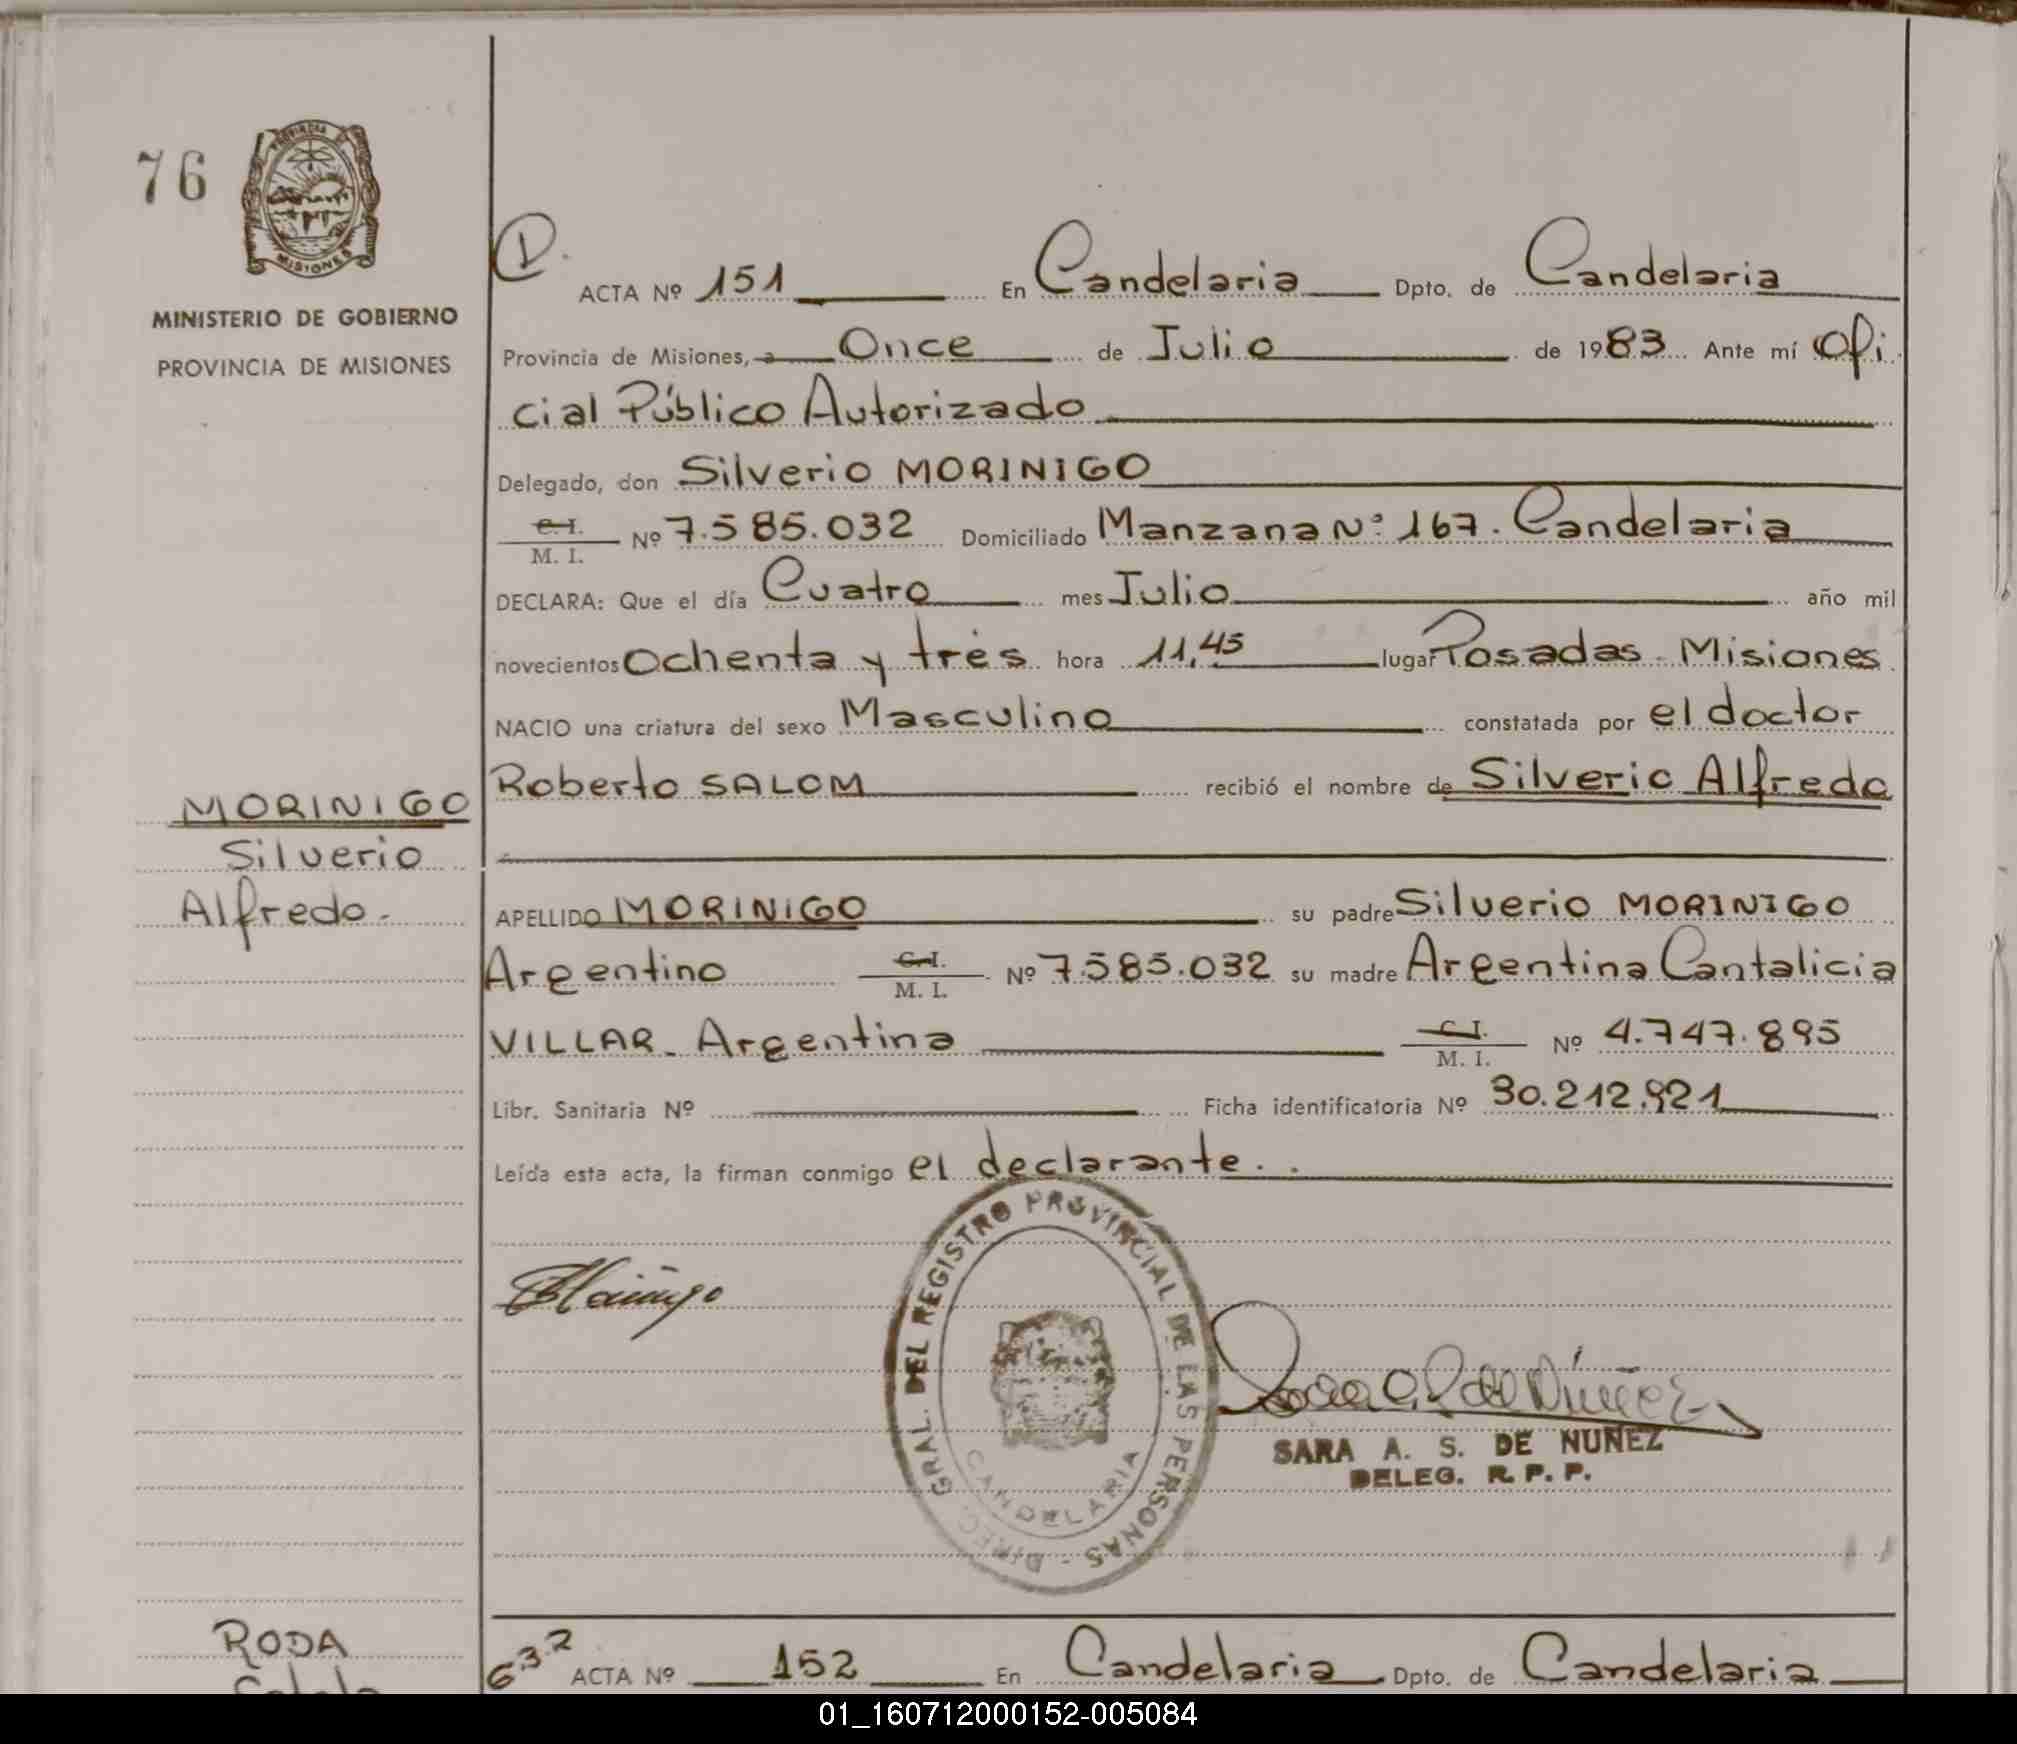 76
PROVINCIA
MISIONES
MINISTERIO DE GOBIERNO
PROVINCIA DE MISIONES
ACTA Nº 151 En Candelaria Dpto. de Candelaria
Provincia de Misiones, a Once de Julio de 1983 Ante mí Ofi
cial Público Autorizado
Delegado, don Silverio MORINIGO
C. I.
M. I. Nº 7.585.032 Domiciliado Manzana Nº 167. Candelaria
DECLARA: Que el día Cuatro mes Julio año mil
novecientos Ochenta y tres hora 11,45 lugar Posadas - Misiones
NACIO una criatura del sexo Masculino constatada por el doctor
Roberto SALOM recibió el nombre de Silverio Alfredo
MORINIGO
Silverio
Alfredo.-
APELLIDO MORINIGO su padre Silverio MORINIGO
Argentino C. I. M. I. Nº 7.585.032 su madre Argentina Cantalicia
VILLAR - Argentina C. I. M. I. Nº 4.747.895
Libr. Sanitaria Nº Ficha identificatoria Nº 30.212.921
Leída esta acta, la firman conmigo el declarante..
DIREC. GRAL. DEL REGISTRO PROVINCIAL DE LAS PERSONAS -
CANDELARIA
SARA A. S. DE NUÑEZ
DELEG. R. P. P.
RODA
632 ACTA Nº 152 En Candelaria Dpto. de Candelaria
01_160712000152-005084